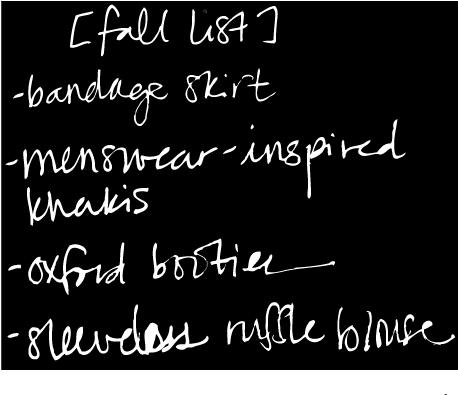 [fall list]
-bandage skirt
-menswear-inspired
khakis
-oxford booties
-sleeveless ruffle blouse